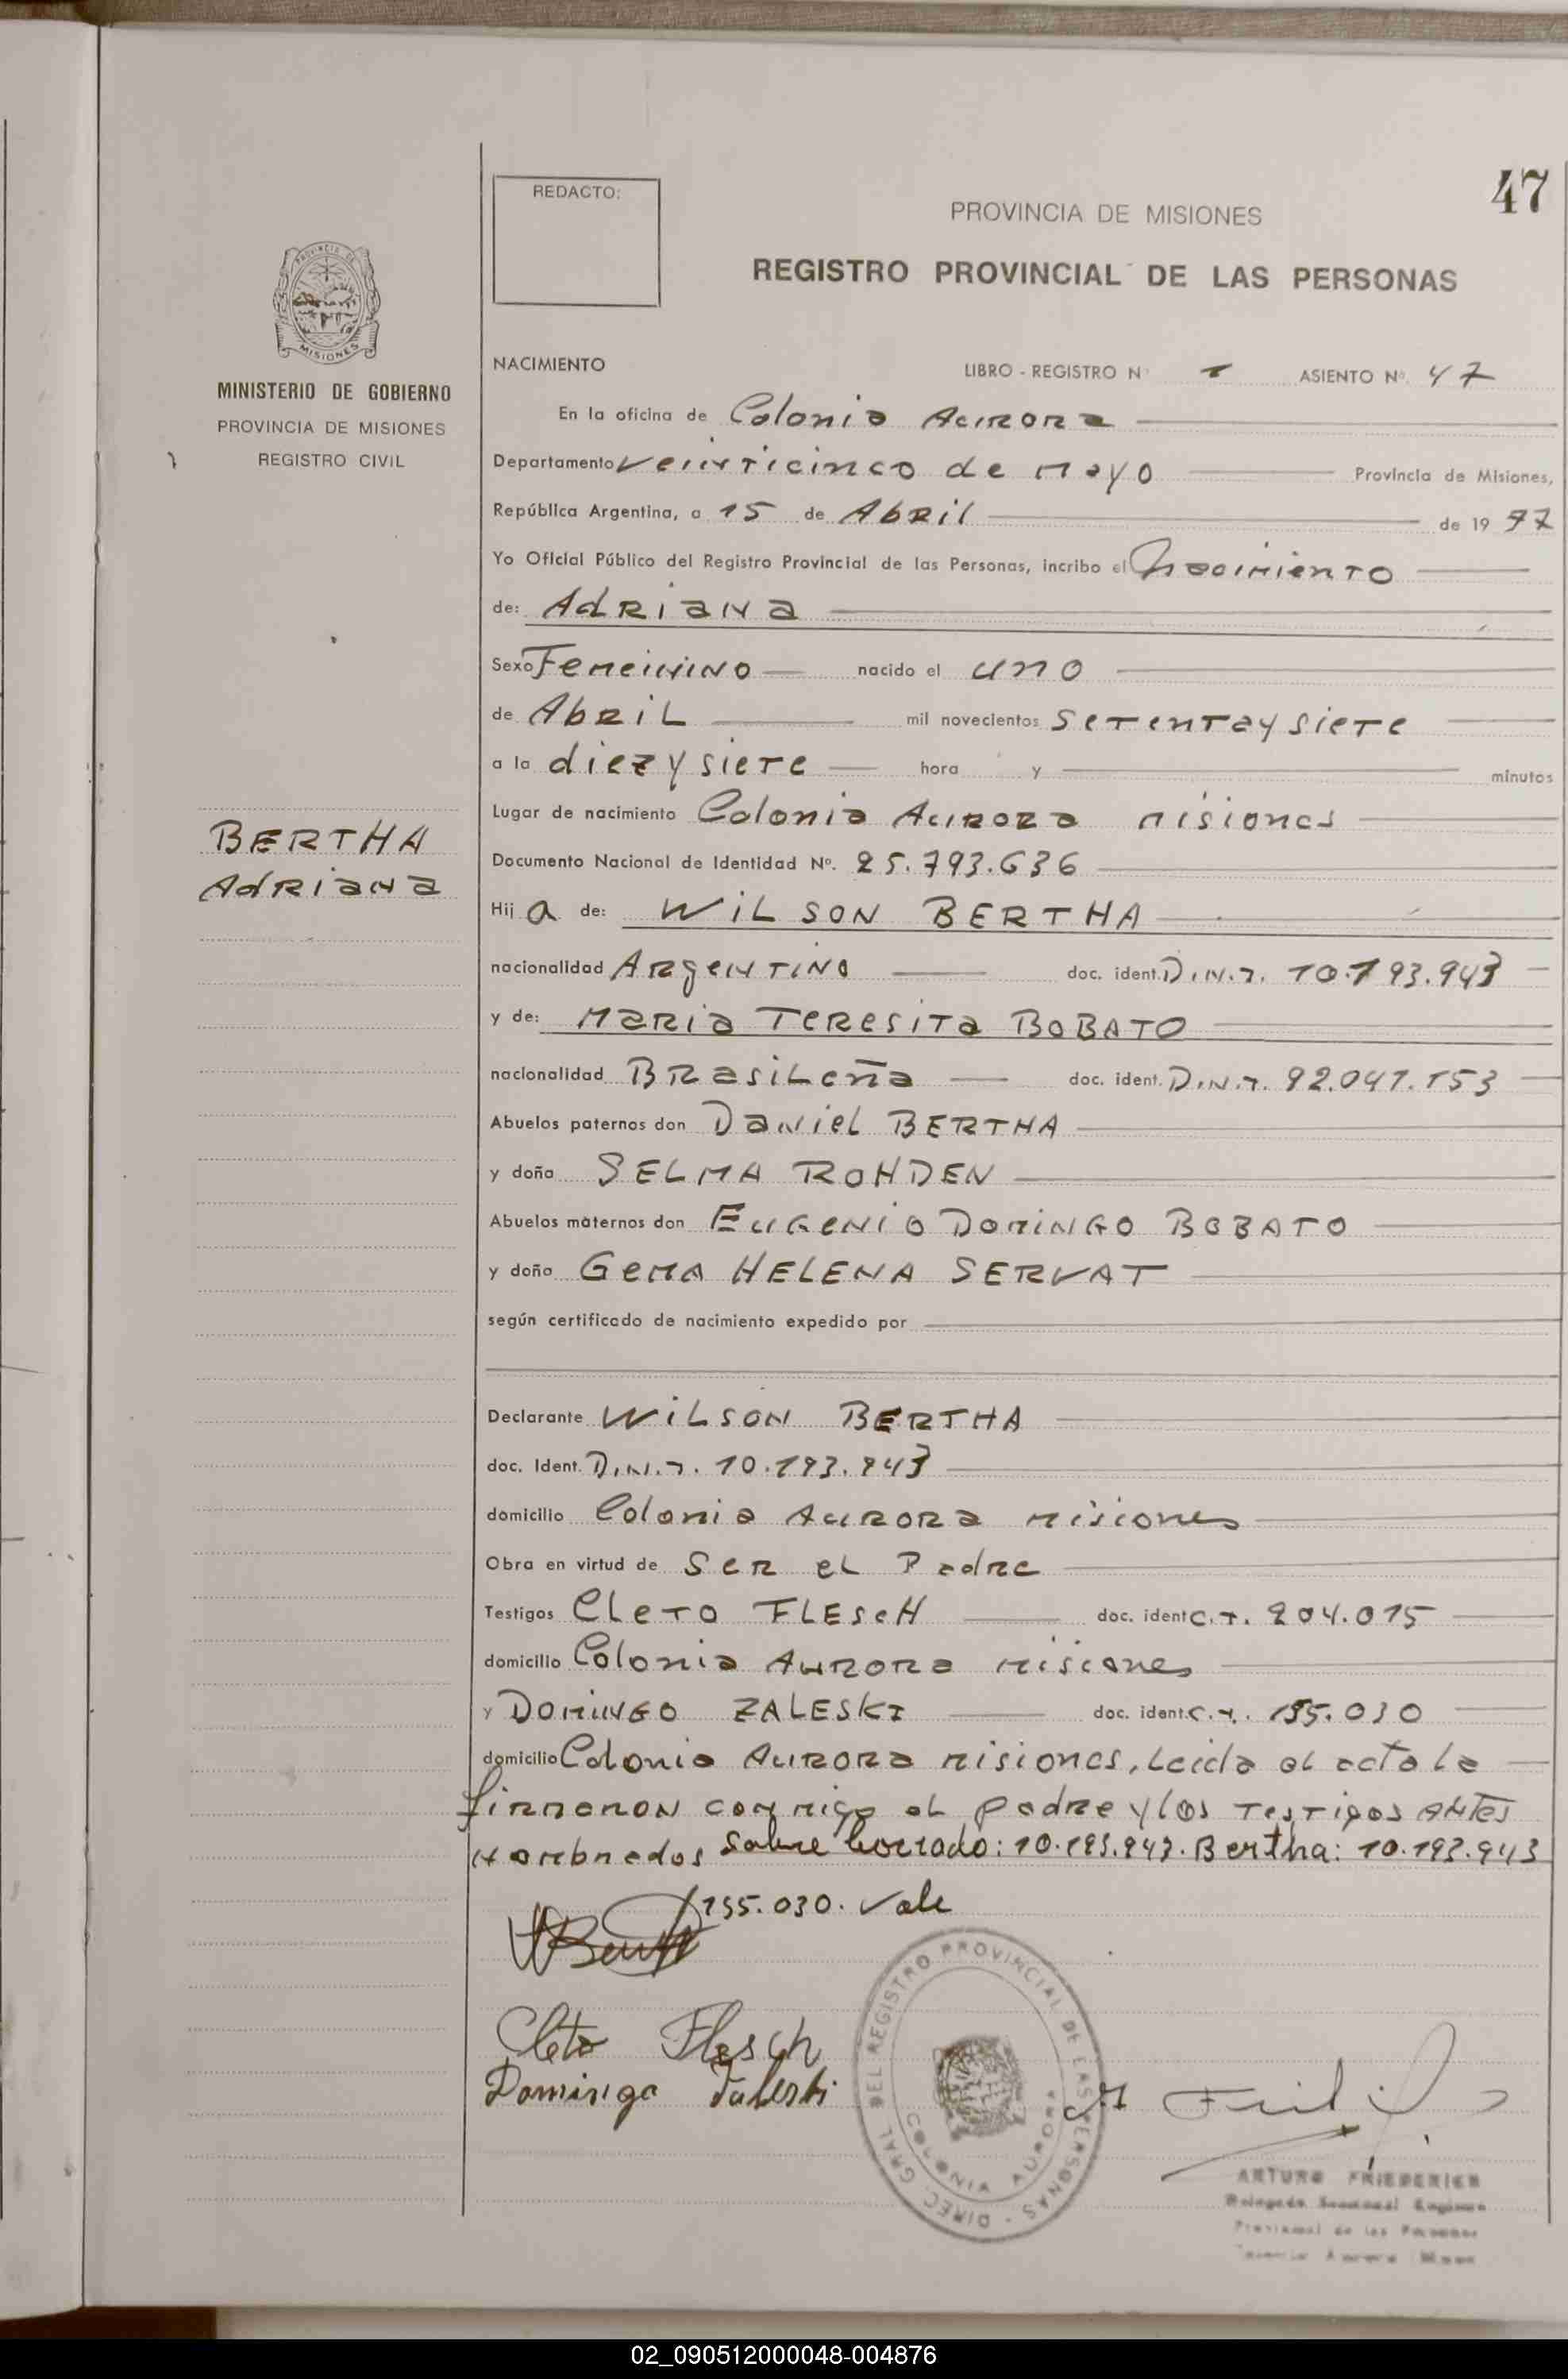 47
REDACTO:
PROVINCIA DE MISIONES
REGISTRO PROVINCIAL DE LAS PERSONAS
PROVINCIA DE
MISIONES
MINISTERIO DE GOBIERNO
PROVINCIA DE MISIONES
REGISTRO CIVIL
NACIMIENTO LIBRO - REGISTRO Nº 1 ASIENTO Nº. 47
En la oficina de Colonia Aurora
Departamento veinticinco de mayo Provincia de Misiones,
República Argentina, a 15 de Abril de 19 77
Yo Oficial Público del Registro Provincial de las Personas, incribo el Nacimiento
de: Adriana
Sexo Femenino nacido el uno
de Abril mil novecientos setenta y siete
a la diez y siete hora y minutos
Lugar de nacimiento Colonia Aurora Misiones
BERTHA
Adriana
Documento Nacional de Identidad Nº. 25.793.636
Hij a de: WILSON BERTHA
nacionalidad Argentino doc. ident. D.N.I. 10.193.943
y de: Maria Teresita BOBATO
nacionalidad Brasileña doc. ident. D.N.I. 92.041.153
Abuelos paternos don Daniel BERTHA
y doña SELMA ROHDEN
Abuelos maternos don Eugenio Domingo BOBATO
y doña Gema HELENA SERVAT
según certificado de nacimiento expedido por
Declarante WILSON BERTHA
doc. Ident. D.N.I. 10.193.943
domicilio Colonia Aurora Misiones
Obra en virtud de Ser el Padre
Testigos Cleto FLESCH doc. ident C.I. 204.015
domicilio Colonia Aurora Misiones
y Domingo ZALESKI doc. ident. C.I. 155.030
domicilio Colonia Aurora Misiones, Leida el acta la
firmaron conmigo el padre y los testigos antes
nombrados Sobre borrado: 10.193.943. Bertha: 10.193.943
155.030. Vale
Cleto Flesch
Domingo Zaleski
DIREC. GRAL DEL REGISTRO PROVINCIAL DE LAS PERSONAS
COLONIA AURORA
ARTURO FRIEDERICH
Provincial de las Personas
02_090512000048-004876